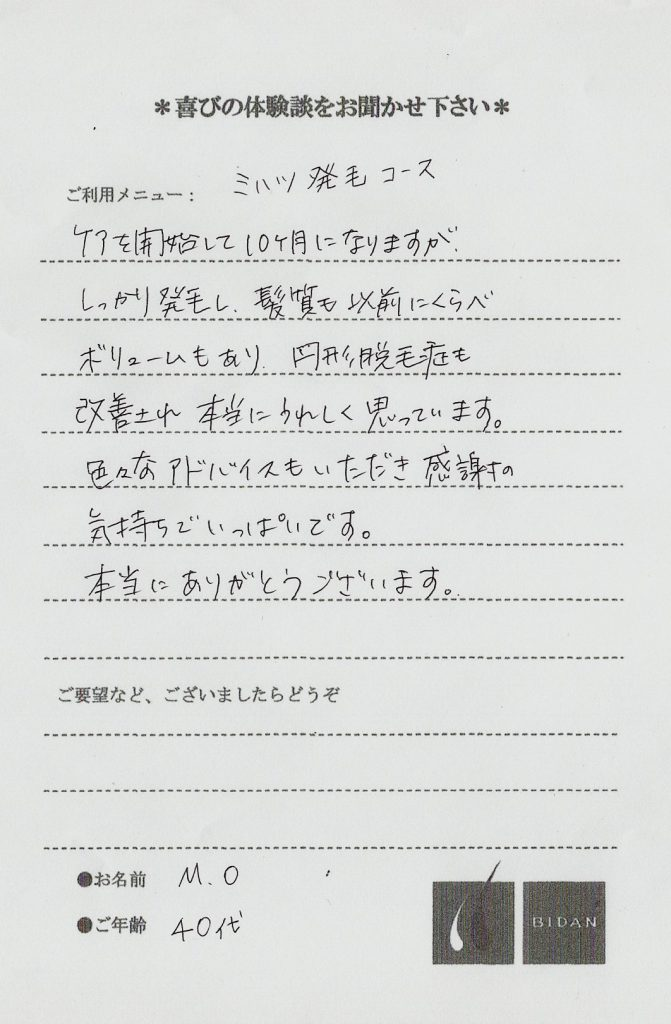 ＊喜びの体験談をお聞かせ下さい＊
ご利用メニュー： ミハツ発毛コース
ケアを開始して10ヶ月になりますが、
しっかり発毛し、髪質も以前にくらべ
ボリュームもあり、円形脱毛症も
改善され 本当にうれしく思っています。
色々なアドバイスもいただき感謝の
気持ちでいっぱいです。
本当にありがとうございます。
ご要望など、ございましたらどうぞ
●お名前 M.O
●ご年齢 40代
BIDAN